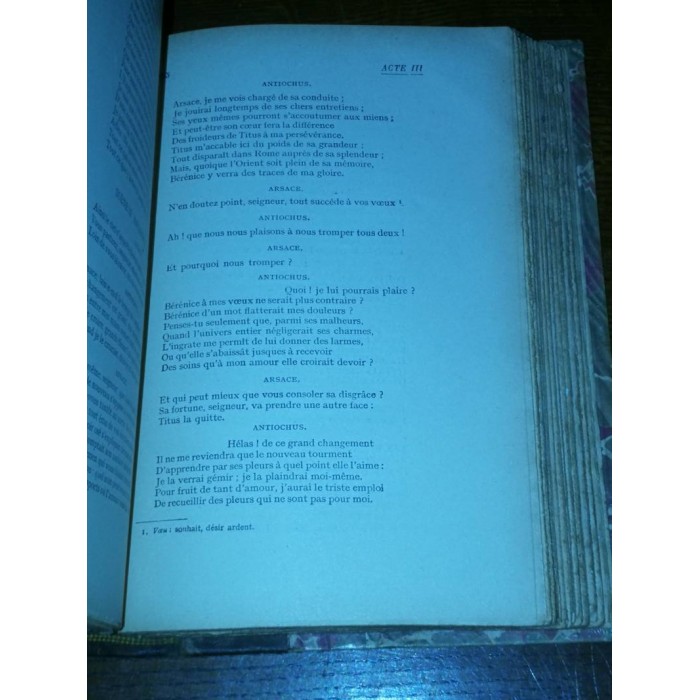 ACTE III
ANTIOCHUS.
Arsace, je me vois chargé de sa conduite ;
Je jouirai longtemps de ses chers entretiens ;
Ses yeux mêmes pourront s'accoutumer aux miens ;
Et peut-être son cœur fera la différence
Des froideurs de Titus à ma persévérance.
Titus m'accable ici du poids de sa grandeur ;
Tout disparaît dans Rome auprès de sa splendeur ;
Mais, quoique l'Orient soit plein de sa mémoire,
Bérénice y verra des traces de ma gloire.
ARSACE.
N'en doutez point, seigneur, tout succède à vos vœux ¹.
ANTIOCHUS.
Ah ! que nous nous plaisons à nous tromper tous deux !
ARSACE.
Et pourquoi nous tromper ?
ANTIOCHUS.
Quoi ! je lui pourrais plaire ?
Bérénice à mes vœux ne serait plus contraire ?
Bérénice d'un mot flatterait mes douleurs ?
Penses-tu seulement que, parmi ses malheurs,
Quand l'univers entier négligerait ses charmes,
L'ingrate me permît de lui donner des larmes,
Ou qu'elle s'abaissât jusques à recevoir
Des soins qu'à mon amour elle croirait devoir ?
ARSACE.
Et qui peut mieux que vous consoler sa disgrâce ?
Sa fortune, seigneur, va prendre une autre face :
Titus la quitte.
ANTIOCHUS.
Hélas ! de ce grand changement
Il ne me reviendra que le nouveau tourment
D'apprendre par ses pleurs à quel point elle l'aime :
Je la verrai gémir ; je la plaindrai moi-même.
Pour fruit de tant d'amour, j'aurai le triste emploi
De recueillir des pleurs qui ne sont pas pour moi.
1. Vœu : souhait, désir ardent.